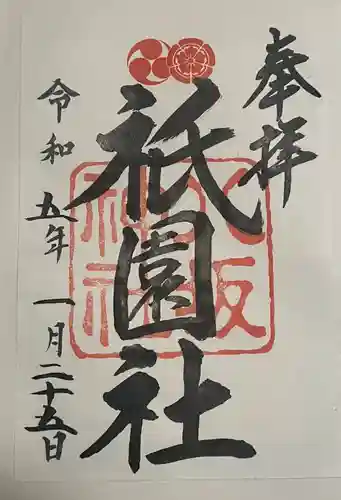 奉拝
祇園社
八坂神社
令和五年一月二十五日